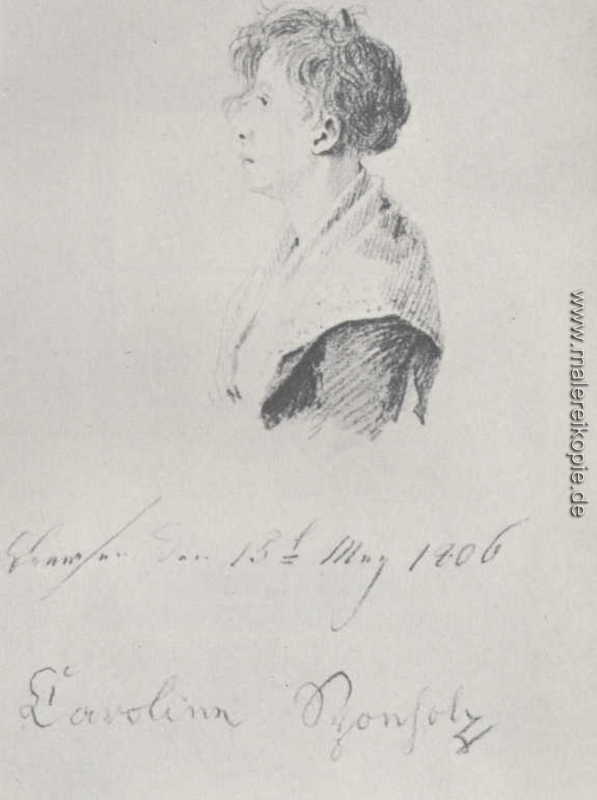 Breesen den May 1806
Caroline Sponholz
www.malereikopie.de